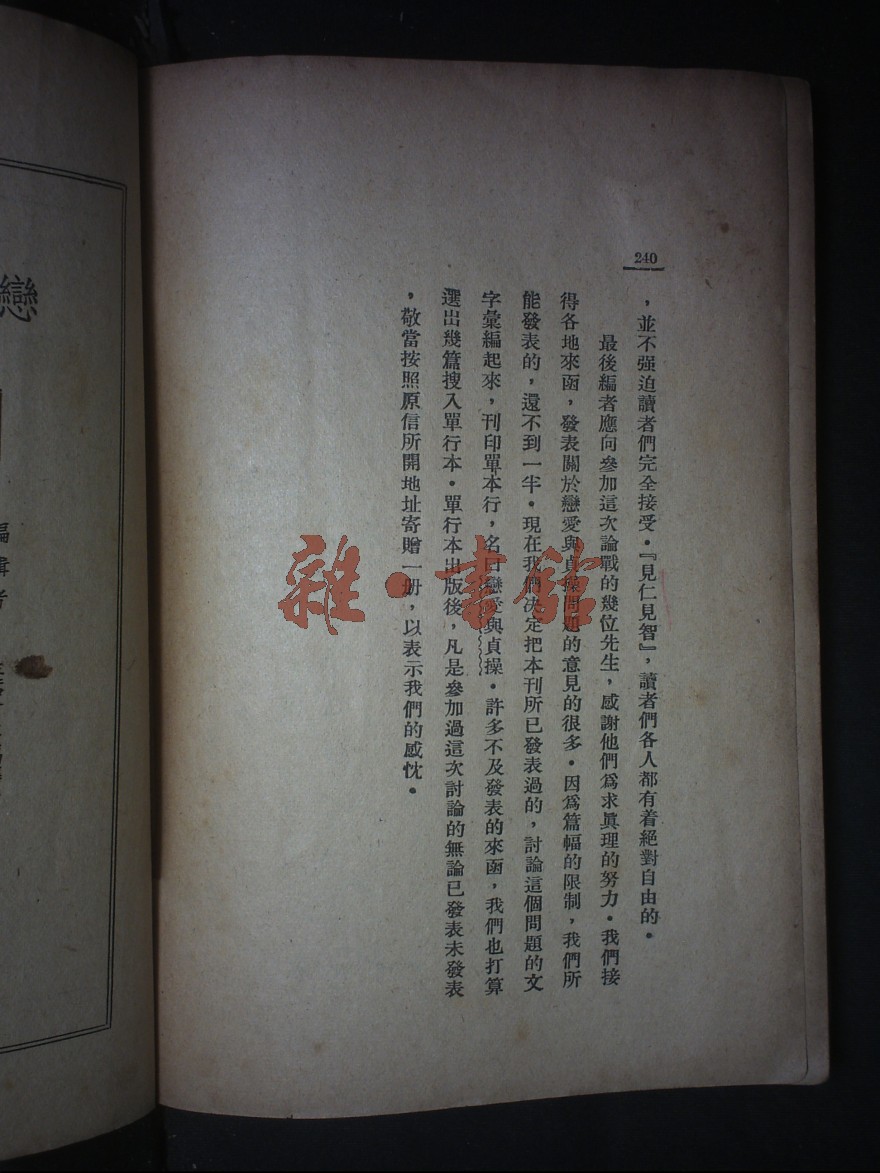 240
，並不强迫讀者們完全接受。『見仁見智』，讀者們各人都有着絕對自由的。
最後編者應向參加這次論戰的幾位先生，感謝他們爲求眞理的努力。我們接
得各地來函，發表關於戀愛與貞操問題的意見的很多。因爲篇幅的限制，我們所
能發表的，還不到一半。現在我們決定把本刊所已發表過的，討論這個問題的文
字彙編起來，刊印單本行，名曰戀愛與貞操。許多不及發表的來函，我們也打算
選出幾篇搜入單行本。單行本出版後，凡是參加過這次討論的無論已發表未發表
，敬當按照原信所開地址寄贈一册，以表示我們的感忱。
戀
編
者
雜·書館